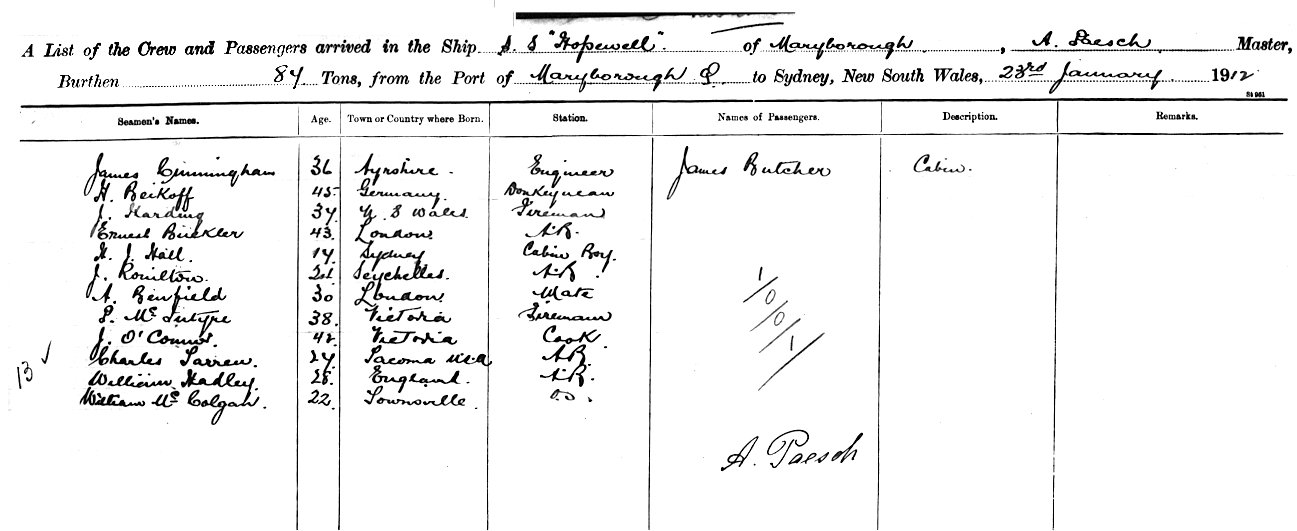 A List of the Crew and Passengers arrived in the Ship S. S "Hopewell". of Maryborough, A. Paesch Master,
Burthen 84 Tons, from the Port of Maryborough Q. to Sydney, New South Wales, 23rd January 1912
St 961
Seamen's Names. Age. Town or Country where Born. Station. Names of Passengers. Description. Remarks.
James Cunningham 36 Ayrshire. Engineer James Butcher Cabin.
H. Beikoff 45 Germany. Donkeyman
J. Harding 34 N. S Wales. Fireman
Ernest Buckler 43. London. A.B.
H. J. Hall. 14. Sydney Cabin Boy.
J. Romilton. Seychelles. A.B.
A. Benfield 30 London. Mate
P. Mc Intyre 38. Victoria Fireman
J. O'Connor. 42. Victoria Cook.
Charles Larren. 24 Tacoma U.S.A A.B.
William Hadley. 28. England. A.B.
William Mc Colgan. 22. Townsville. O.S.
13 ✓
1/0/0/1/
A. Paesch